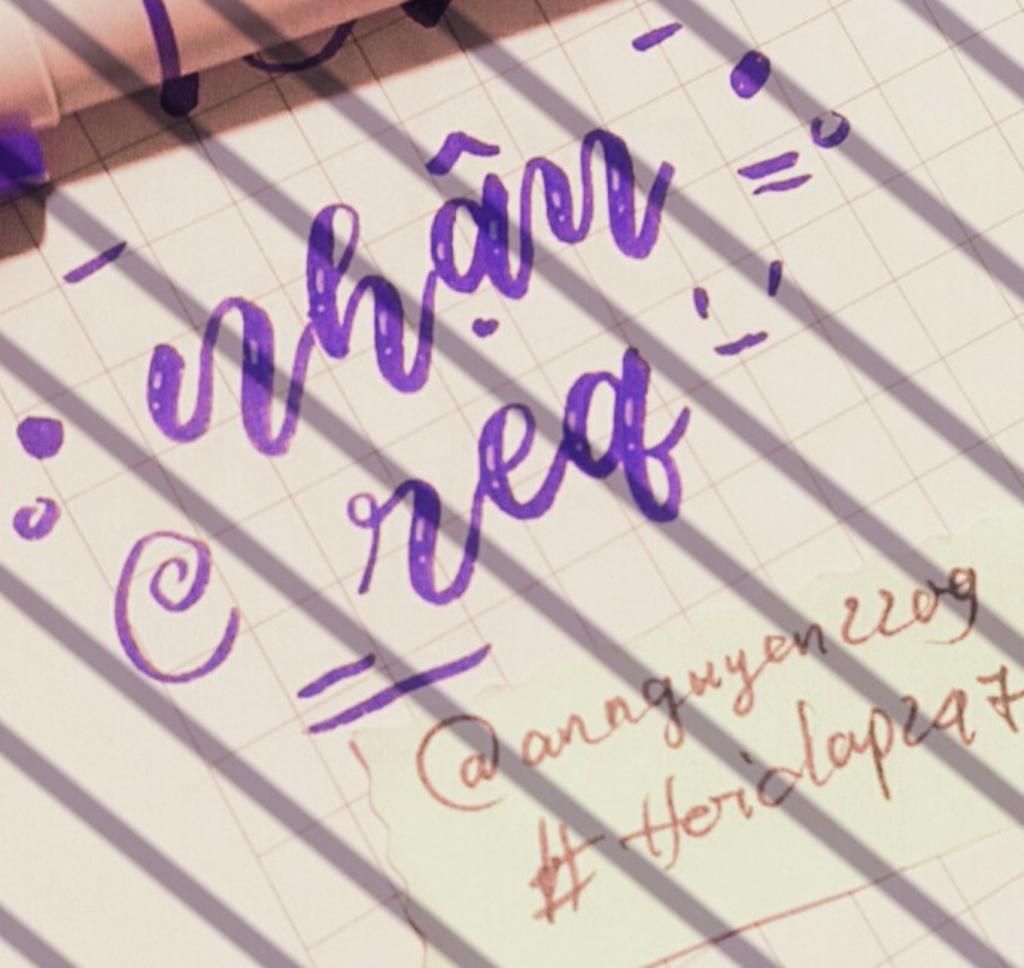 nhận
req
@annguyen2209
#Hoidap247